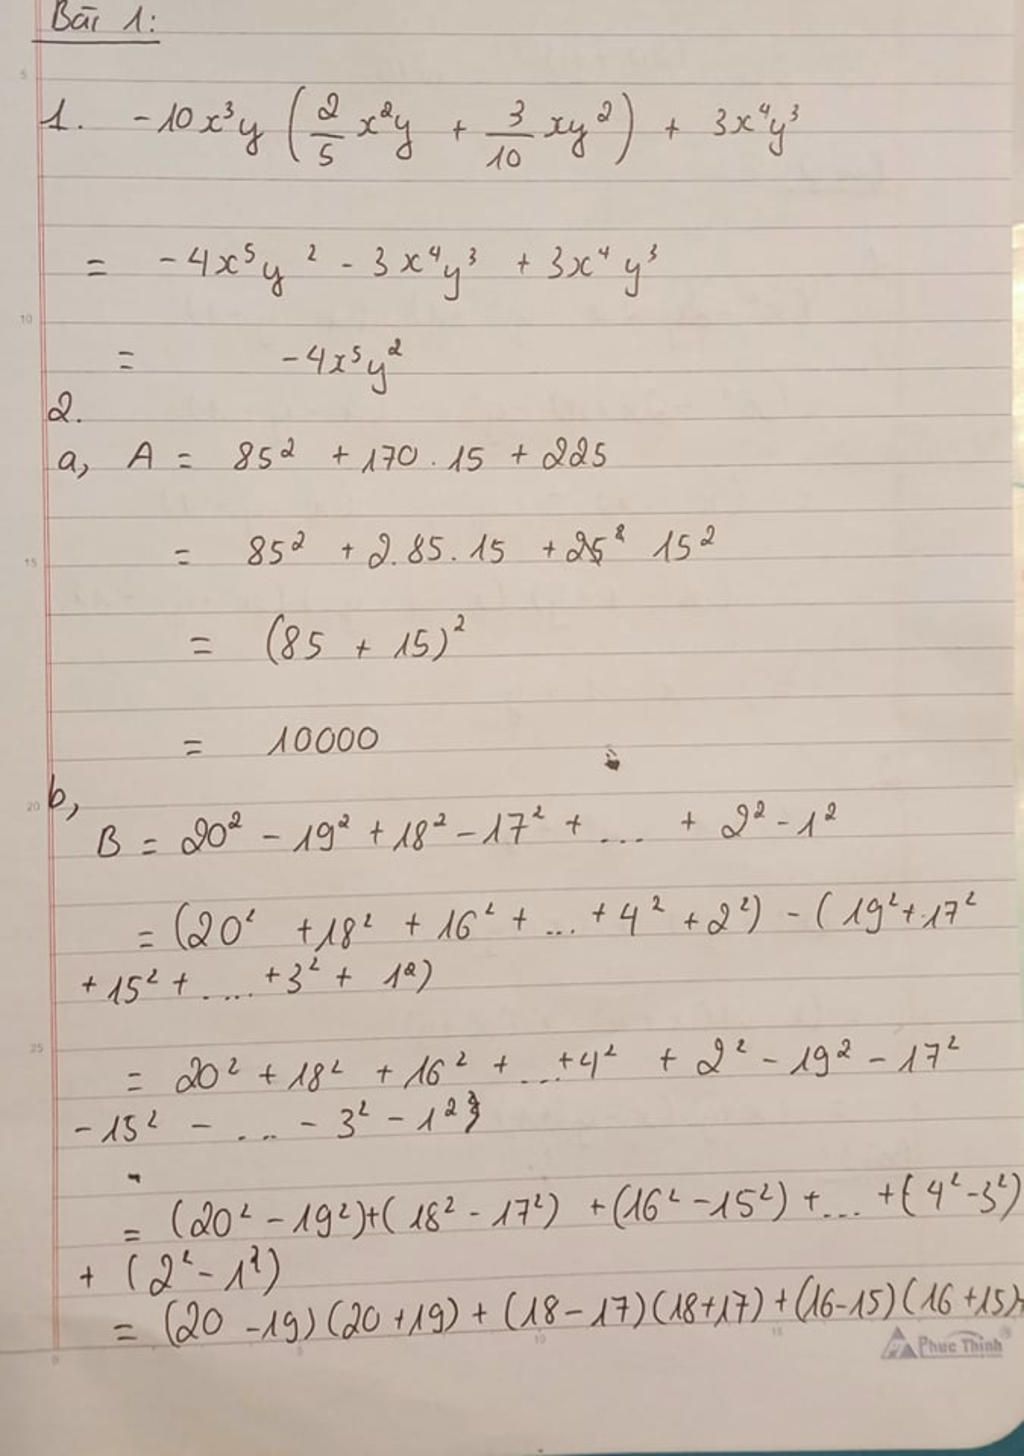 Bài 1:
1. -10x³y (2/5 x²y + 3/10 xy²) + 3x⁴y³
= -4x⁵y² - 3x⁴y³ + 3x⁴y³
= -4x⁵y²
2.
a, A = 85² + 170 . 15 + 225
= 85² + 2.85.15 + 15²
= (85 + 15)²
= 10000
b,
B = 20² - 19² + 18² - 17² + ... + 2² - 1²
= (20² + 18² + 16² + ... + 4² + 2²) - (19² + 17²
+ 15² + .... + 3² + 1²)
= 20² + 18² + 16² + ... + 4² + 2² - 19² - 17²
- 15² - ... - 3² - 1²
= (20² - 19²) + (18² - 17²) + (16² - 15²) + ... + (4² - 3²)
+ (2² - 1²)
= (20 - 19)(20 + 19) + (18 - 17)(18 + 17) + (16 - 15)(16 + 15) +
Phuc Thinh
5
10
15
20
25
0
5
10
15